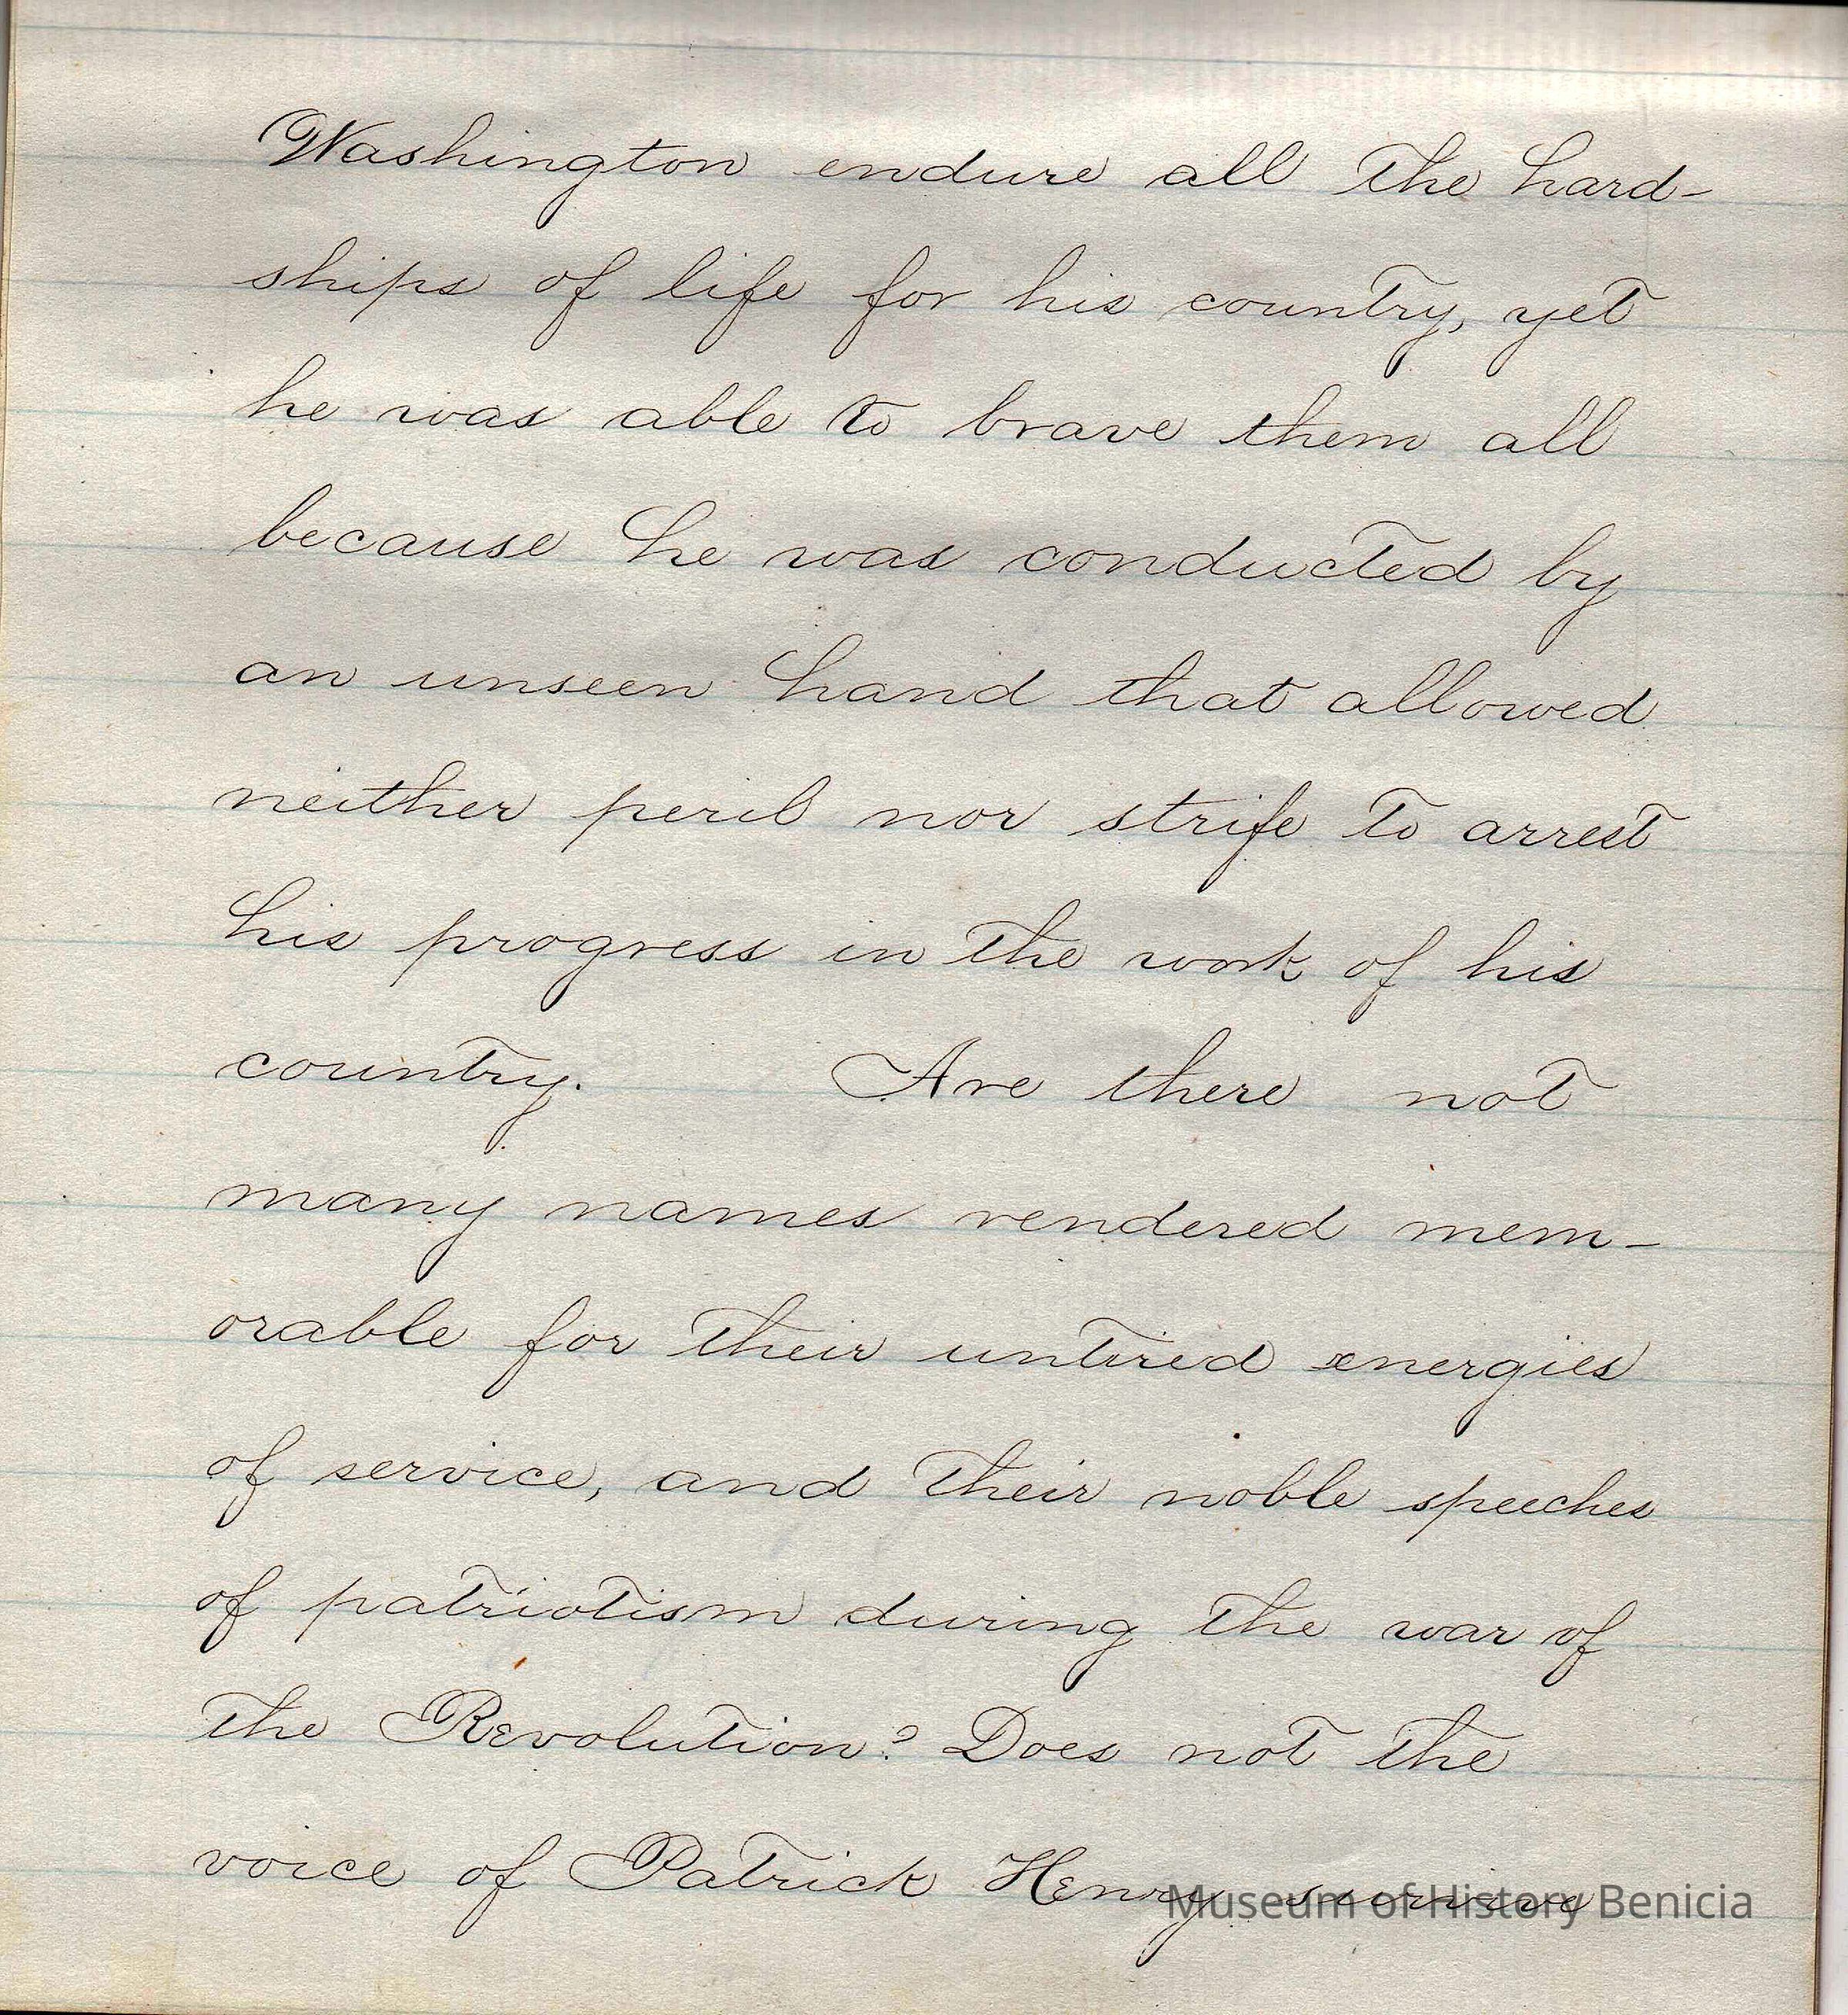 Washington endure all the hard-
ships of life for his country, yet
he was able to brave them all
because he was conducted by
an unseen hand that allowed
neither peril nor strife to arrest
his progress in the work of his
country. Are there not
many names rendered mem-
orable for their untired energies
of service, and their noble speeches
of patriotism during the war of
the Revolution? Does not the
voice of Patrick Henry survive
Museum of History Benicia